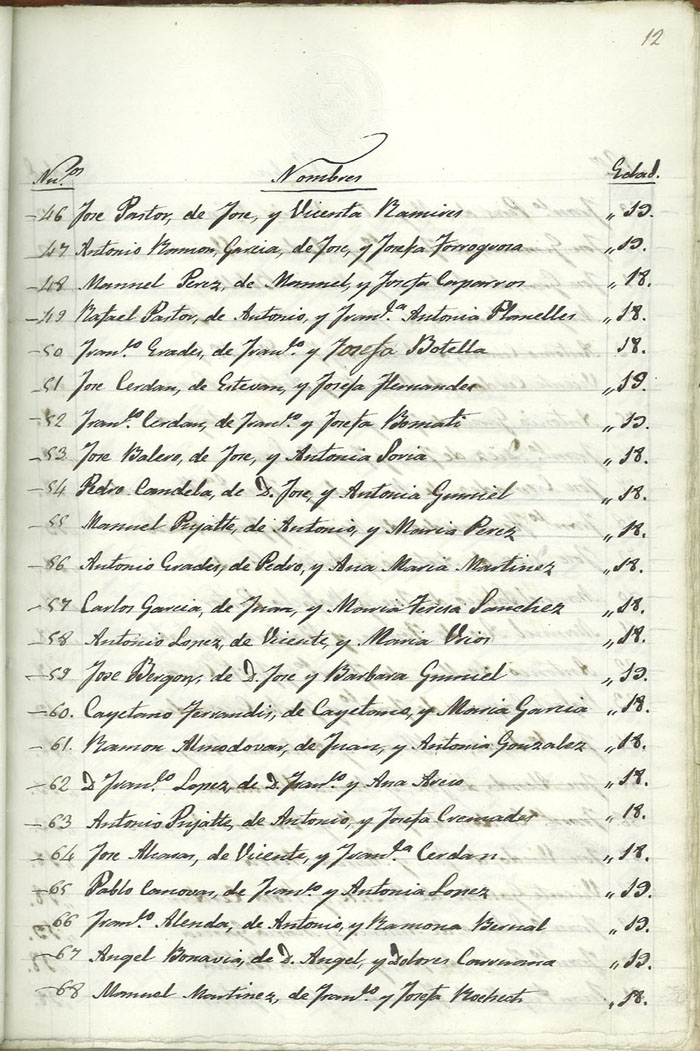 12
Nu.os Nombres Edad.
46 Jose Pastor, de Jose, y Vicenta Ramires „ 19.
47 Antonio Ramon, Garcia, de Jose, y Josefa Torregrosa „ 19.
48 Manuel Perez, de Manuel, y Josefa Caparros „ 18.
49 Rafael Pastor, de Antonio, y Fran.ca Antonia Planelles „ 18.
50 Fran.co Grades, de Fran.co y Josefa Botella 18.
51 Jose Cerdan, de Estevan, y Josefa Hernandes „ 19.
52 Fran.co Cerdan, de Fran.co y Josefa Bomati „ 19.
53 Jose Balero, de Jose, y Antonia Soria „ 18.
54 Pedro Candela, de D. Jose, y Antonia Gumiel „ 18.
55 Manuel Pujalte, de Antonio, y Maria Perez „ 18.
56 Antonio Grades, de Pedro, y Ana Maria Martinez „ 18.
57 Carlos Garcia, de Juan, y Maria Teresa Sanchez „ 18.
58 Antonio Lopez, de Vicente, y Maria Vrios „ 18.
59 Jose Bergon, de D. Jose y Barbara Gumiel „ 19.
60. Cayetano Ferrandis, de Cayetano, y Maria Garcia „ 18.
61. Ramon Almodovar, de Juan, y Antonia Gonzalez „ 18.
62 D Fran.co Lopez, de D. Fran.co y Ana „ 18.
63 Antonio Pujalte, de Antonio, y Josefa Cremades „ 18.
64 Jose Alcaras, de Vicente, y Fran.ca Cerdan „ 18.
65 Pablo Canovas, de Fran.co y Antonia Lopez „ 19.
66 Fran.co Alenda, de Antonio, y Ramona Bernal „ 19.
67 Angel Bonavia, de D. Angel, y Dolores „ 19.
68 Manuel Martinez, de Fran.co y Josefa „ 18.